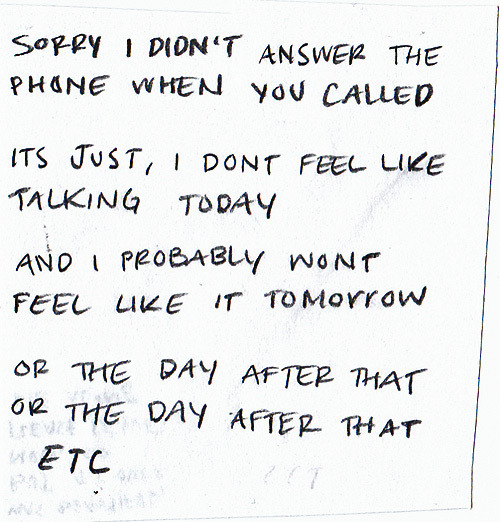 SORRY I DIDN'T ANSWER THE
PHONE WHEN YOU CALLED
ITS JUST, I DONT FEEL LIKE
TALKING TODAY
AND I PROBABLY WONT
FEEL LIKE IT TOMORROW
OR THE DAY AFTER THAT
OR THE DAY AFTER THAT
ETC